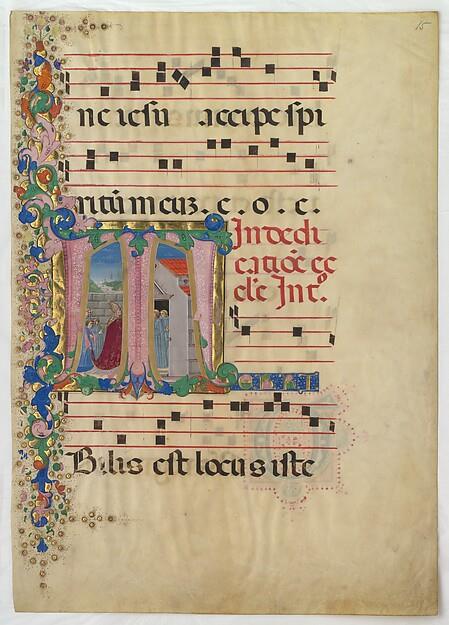 15
ne iesu accipe spi
ritū meuz. c. o. c.
In dedi
catiōe ec
cl'e Int°.
Bilis est locus iste